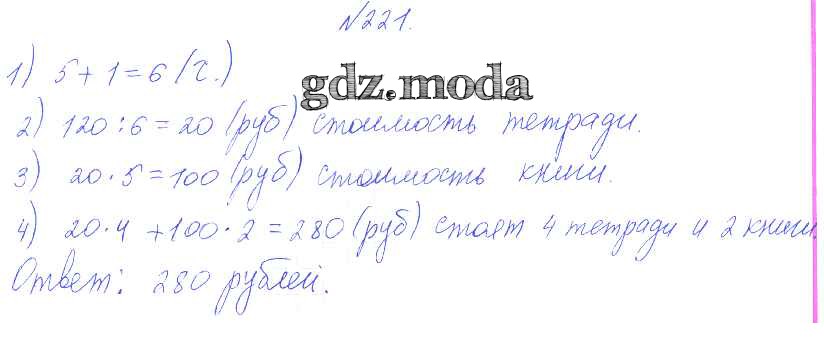 №221.
1) 5+1=6 (ч.)
gdz.moda
2) 120:6=20 (руб) стоимость тетради.
3) 20·5=100 (руб) стоимость книги.
4) 20·4+100·2=280 (руб) стоят 4 тетради и 2 книги.
Ответ: 280 рублей.